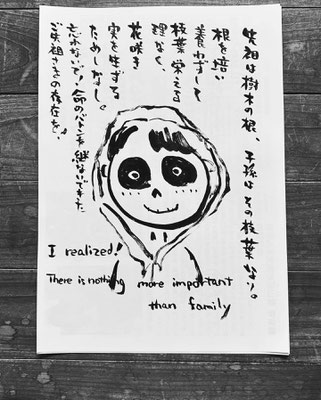 先祖は樹木の根、子孫はその枝葉なり。
根を培い
養わずして
枝葉栄える
理なく、
花咲き
実を生ずる
ためしなし。
忘れないで!命のバトンを継ないできた
ご先祖さまの存在を。
I realized!
There is nothing more important
than family